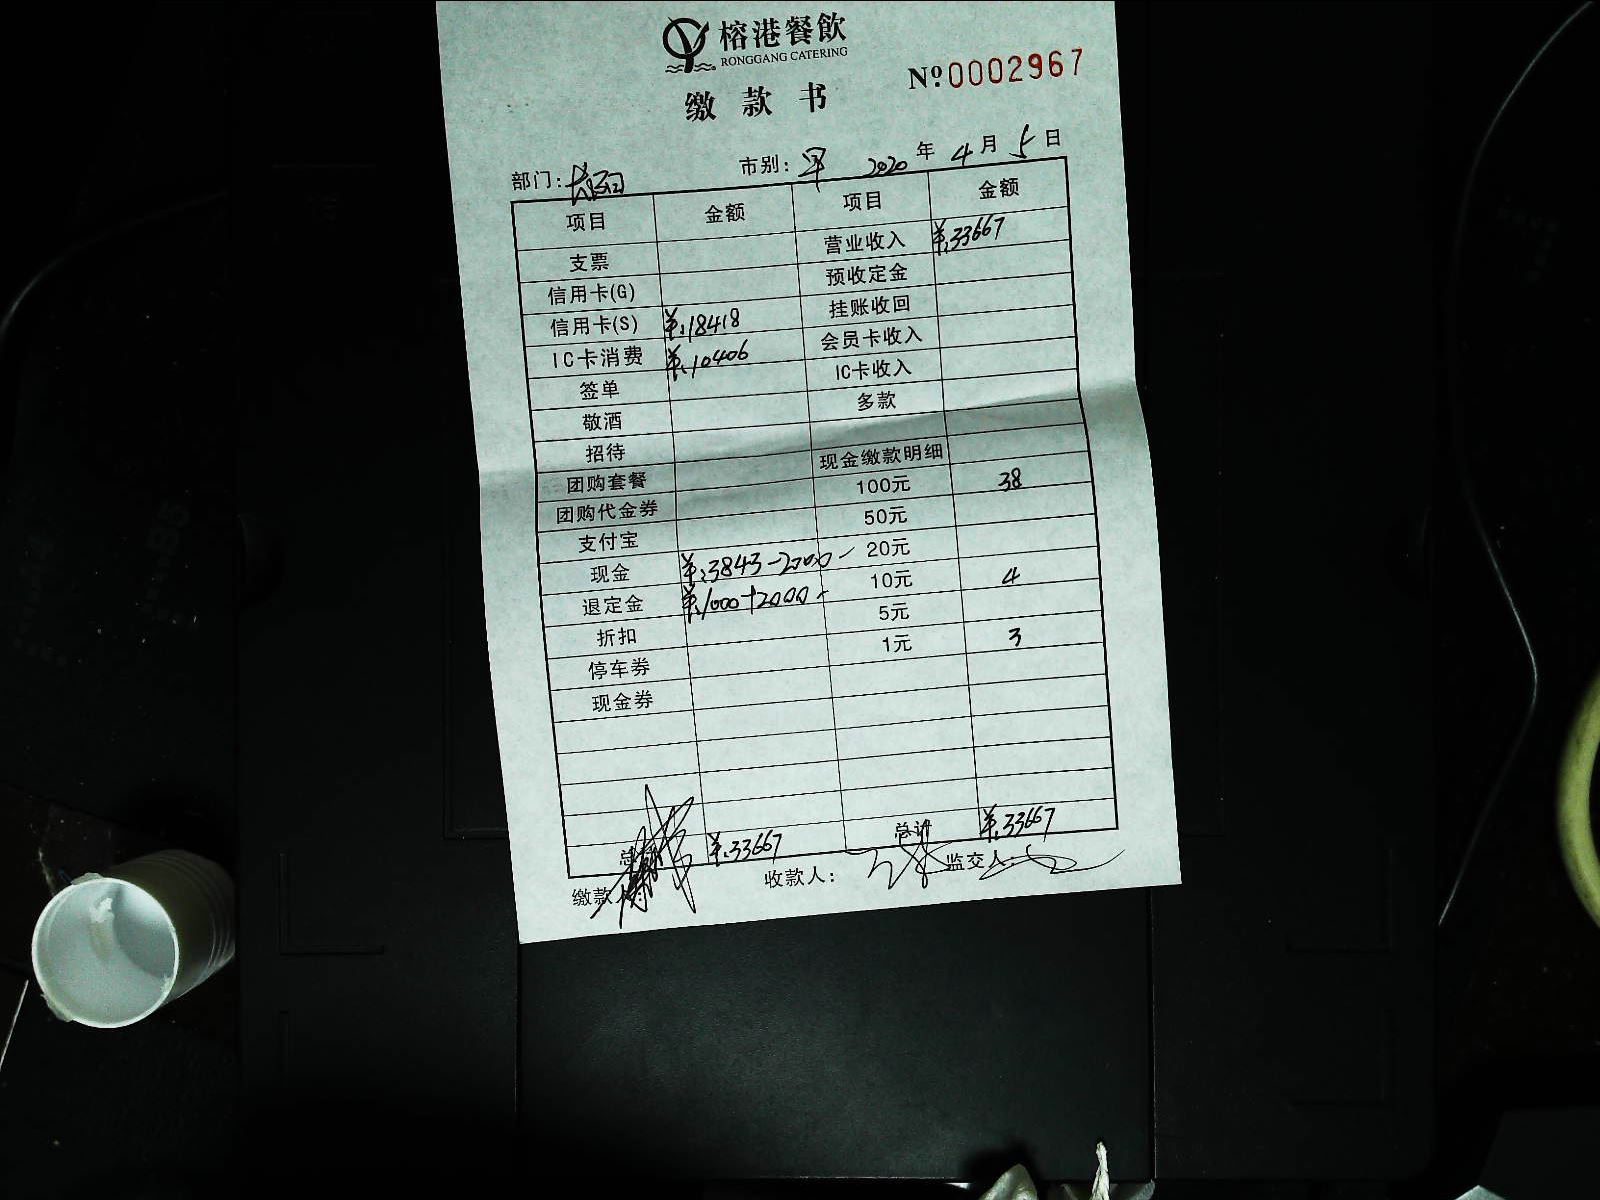 榕港餐飲
RONGGANG CATERING
№0002967
缴款书
部门: 市别: 早 2020年4月5日
项目 金额 项目 金额
支票 营业收入 ¥:33667
信用卡(G) 预收定金
信用卡(S) ¥:18418 挂账收回
IC卡消费 ¥:10406 会员卡收入
签单 IC卡收入
敬酒 多款
招待
团购套餐 现金缴款明细
团购代金券 100元 38
支付宝 50元
现金 ¥:3843-2000- 20元
退定金 ¥:1000+2000- 10元 4
折扣 5元
停车券 1元 3
现金券
总计 ¥:33667 总计 ¥:33667
缴款人: 收款人: 监交人: